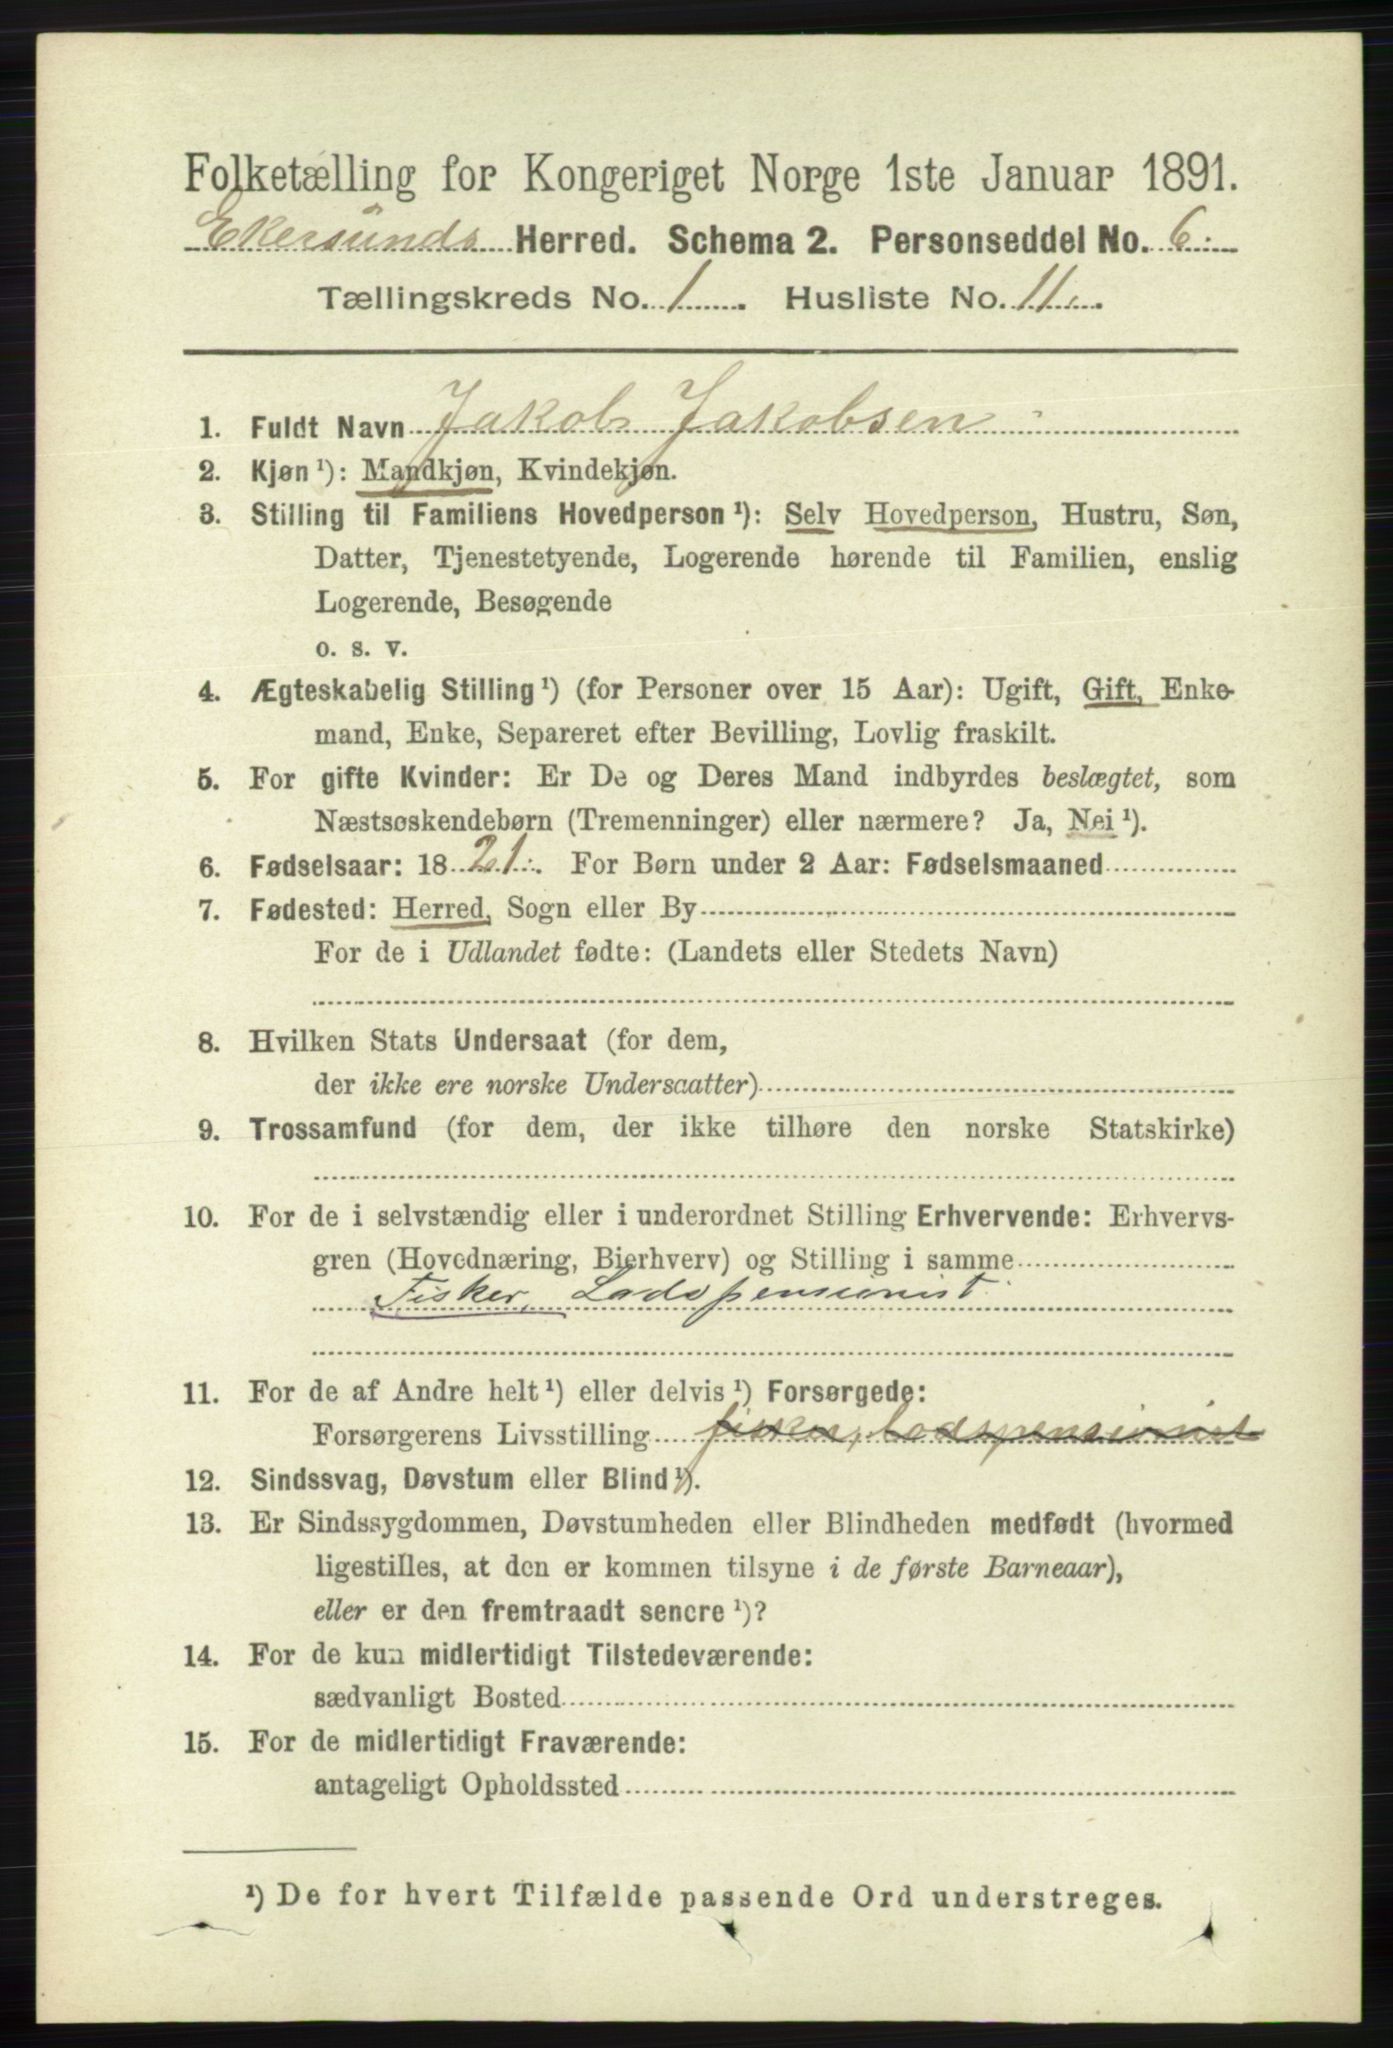 Folketælling for Kongeriget Norge 1ste Januar 1891.
Ekersunds Herred. Schema 2. Personseddel No. 6.
Tællingskreds No. 1. Husliste No. 11.
1. Fuldt Navn Jakob Jakobsen
2. Kjøn ¹): Mandkjøn, Kvindekjøn.
3. Stilling til Familiens Hovedperson ¹): Selv Hovedperson, Hustru, Søn,
Datter, Tjenestetyende, Logerende hørende til Familien, enslig
Logerende, Besøgende
o. s. v.
4. Ægteskabelig Stilling ¹) (for Personer over 15 Aar): Ugift, Gift, Enke-
mand, Enke, Separeret efter Bevilling, Lovlig fraskilt.
5. For gifte Kvinder: Er De og Deres Mand indbyrdes beslægtet, som
Næstsøskendebørn (Tremenninger) eller nærmere? Ja, Nei ¹).
6. Fødselsaar: 1821. For Børn under 2 Aar: Fødselsmaaned
7. Fødested: Herred, Sogn eller By
For de i Udlandet fødte: (Landets eller Stedets Navn)
8. Hvilken Stats Undersaat (for dem,
der ikke ere norske Undersaatter)
9. Trossamfund (for dem, der ikke tilhøre den norske Statskirke)
10. For de i selvstændig eller i underordnet Stilling Erhvervende: Erhvervs-
gren (Hovednæring, Bierhverv) og Stilling i samme
Fisker, Lodspensionist
11. For de af Andre helt ¹) eller delvis ¹) Forsørgede:
Forsørgerens Livsstilling fisker, Lodspensionist
12. Sindssvag, Døvstum eller Blind ¹).
13. Er Sindssygdommen, Døvstumheden eller Blindheden medfødt (hvormed
ligestilles, at den er kommen tilsyne i de første Barneaar),
eller er den fremtraadt senere ¹)?
14. For de kun midlertidigt Tilstedeværende:
sædvanligt Bosted
15. For de midlertidigt Fraværende:
antageligt Opholdssted
¹) De for hvert Tilfælde passende Ord understreges.